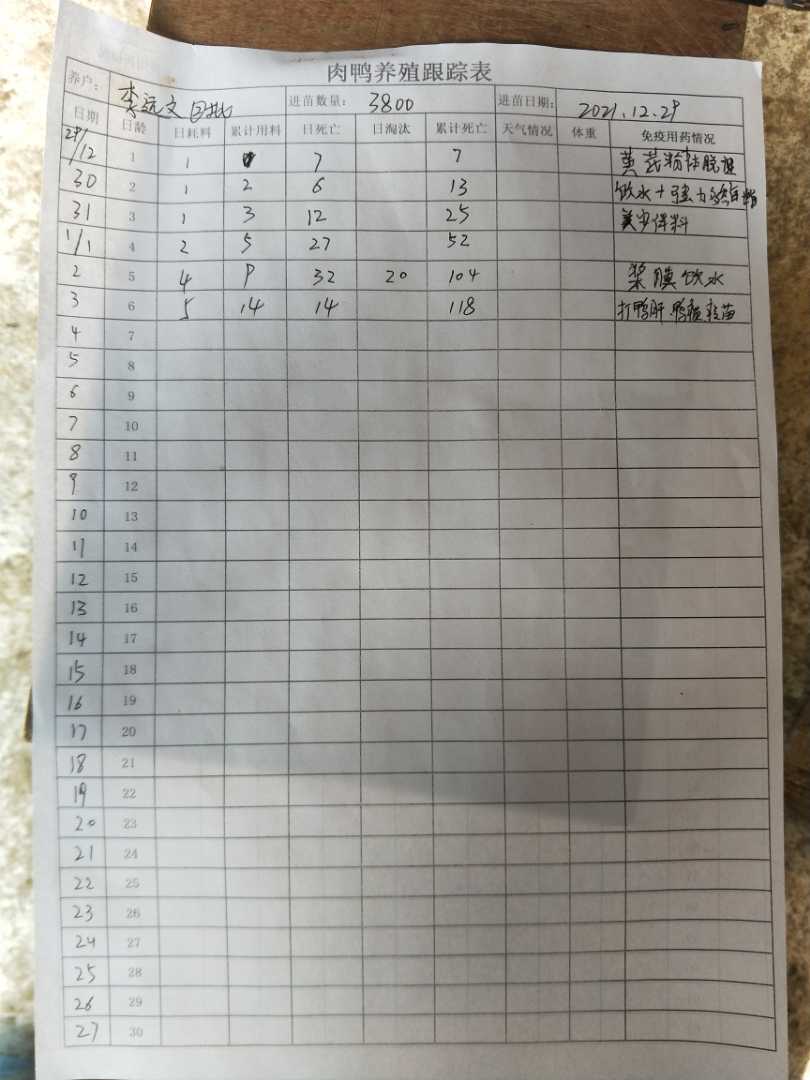 肉鸭养殖跟踪表
养户： 李远文 进苗数量： 3800 进苗日期： 2021.12.29
日期 日龄 日耗料 累计用料 日死亡 日淘汰 累计死亡 天气情况 体重 免疫用药情况
29/12 1 1 7 7 黄芪粉
30 2 1 2 6 13 饮水+强力
31 3 1 3 12 25 料
1/1 4 2 5 27 52
2 5 4 9 32 20 104 浆膜饮水
3 6 5 14 14 118 打鸭肝.鸭瘟疫苗
4 7
5 8
6 9
7 10
8 11
9 12
10 13
11 14
12 15
13 16
14 17
15 18
16 19
17 20
18 21
19 22
20 23
21 24
22 25
23 26
24 27
25 28
26 29
27 30